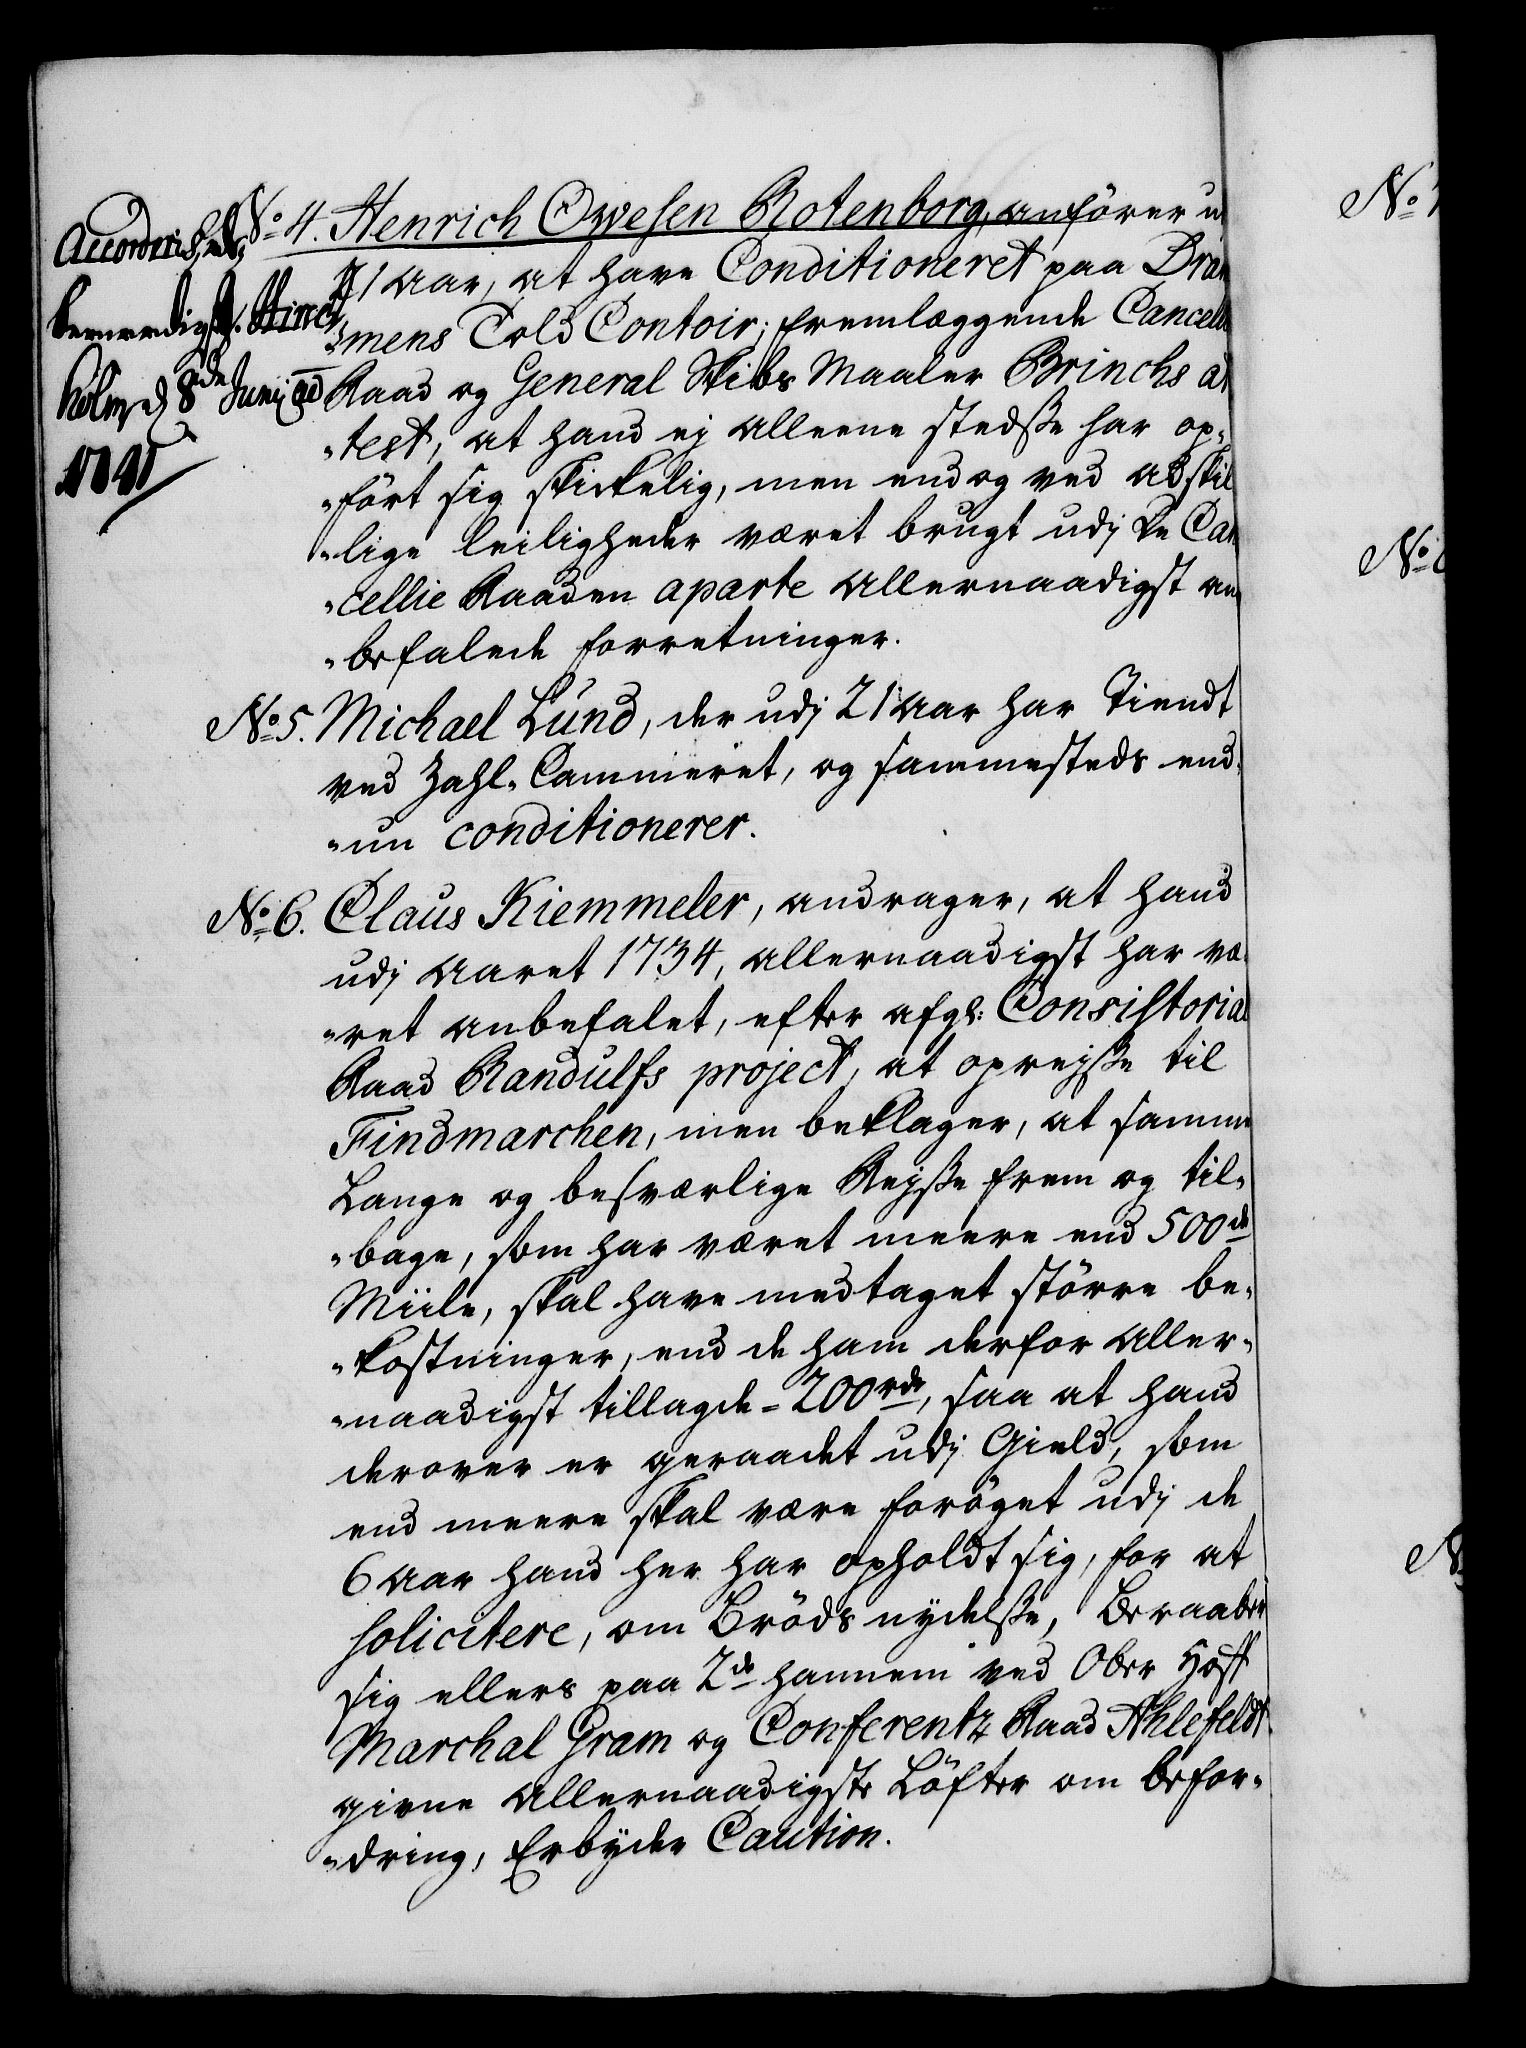 Accorderis,
allernaadigst. Hirsch
holm d 8de Junij ao
1741
No 4. Henrich Owesen Rotenborg, anförer u
11 Aar, at have Conditioneret paa Dra
„mens Told Contoir; fremlæggende Cancelli
Raad og General Skibs Maaler Brinchs at
„test, at hand ej alleene stedsze har op„
„fört sig skickelig, men endog ved adskil
„lige leiligheder været brugt udj de Can
„cellie Raaden aparte allernaadigst an
„befalede forretninger.
No 5. Michael Lund, der udj 21 Aar har Tiendt
ved Zahl-Cammeret, og sammesteds end„
„nu conditionerer.
No 6. Claus Kiemmeler, andrager, at hand
udj Aaret 1734, allernaadigst har væ„
„ret anbefalet, efter afg: Consistorial
Raad Randulfs project, at oprejsze til
Findmarchen, men beklager, at samme
Lange og besværlige Rejsze frem og til„
„bage, som har været meere end 500de
Miile, skal have medtaget större be„
„kostninger, end de ham derfor aller„
„naadigst tillagde - 200 rdr, saa at hand
derover er geraadet udj Gield, som
end meere skal være foröget udj de
6 Aar hand her har opholdt sig, for at
solicitere, om Bröds nydelsze, Beraaber
sig ellers paa 2de hannem ved Ober Hoff
Marchal Gram og Conferentz Raad Ahlefeldt
givne allernaadigste Löfter om befor„
„dring, Erbyder Caution.
No
No
N